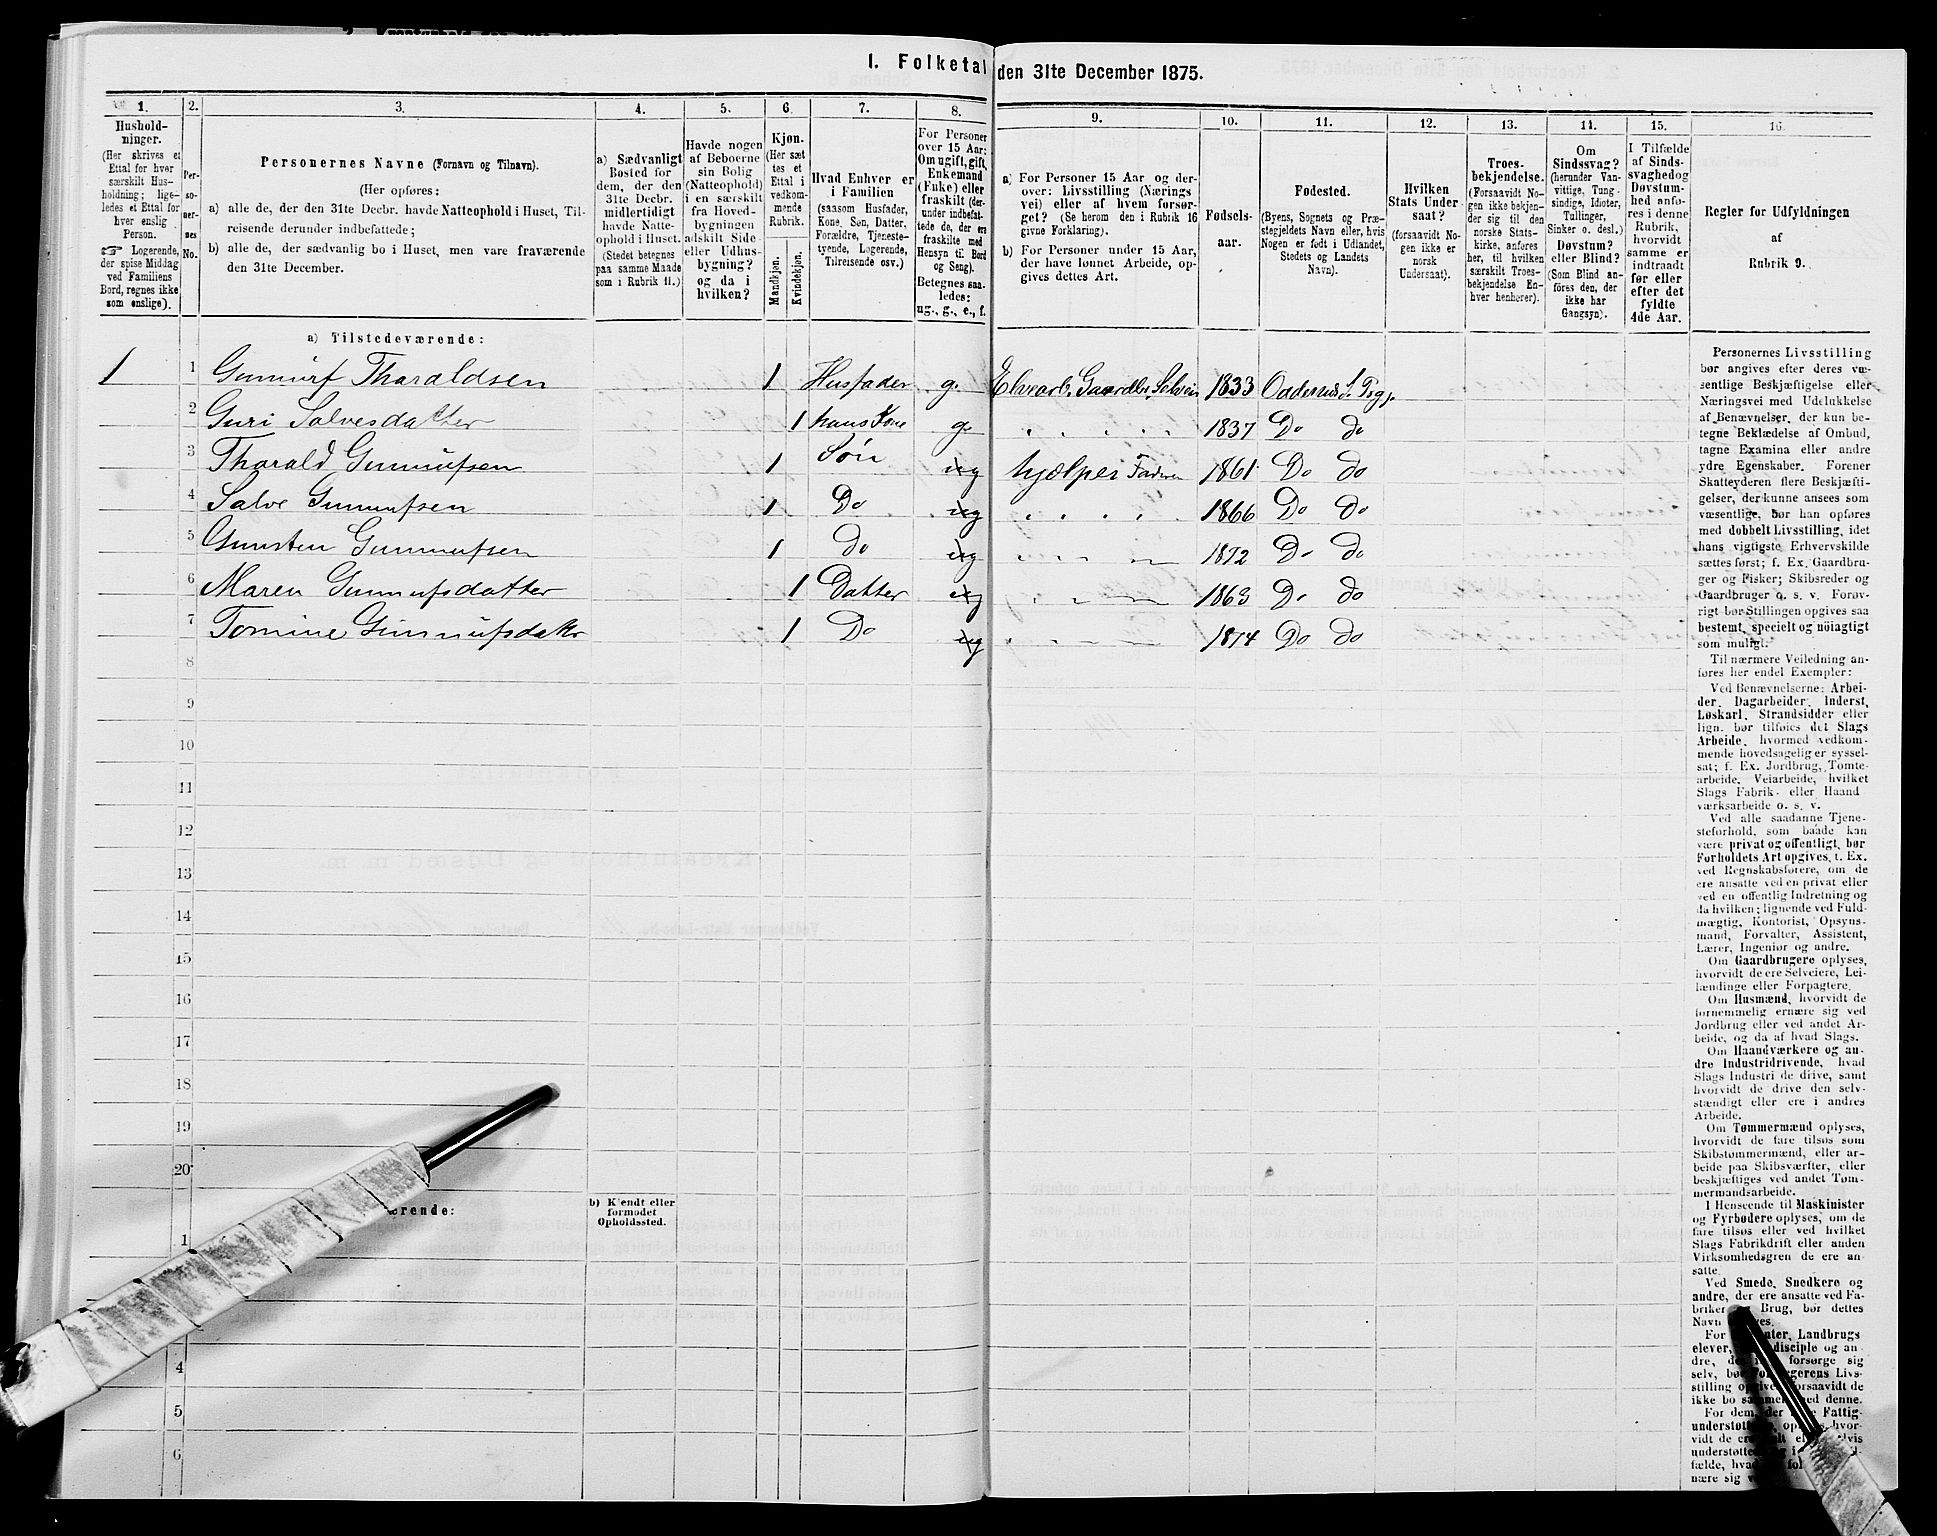 1. Folketal den 31te December 1875.
1.
Hushold-
ninger.
(Her skrives et
Ettal for hver
særskilt Hus-
holdning; lige-
ledes et Ettal for
hver enslig
Person.
☞ Logerende,
der spise Middag
ved Familiens
Bord, regnes ikke
som enslige).
2.
Per-
so-
ner-
nes
No.
3.
Personernes Navne (Fornavn og Tilnavn).
(Her opføres:
a) alle de, der den 31te Decbr. havde Natteophold i Huset, Til-
reisende derunder indbefattede;
b) alle de, der sædvanlig bo i Huset, men vare fraværende
den 31te December.
4.
a) Sædvanligt
Bosted for
dem, der den
31te Decbr.
midlertidigt
havde Natte-
ophold i Huset.
(Stedet betegnes
paa samme Maade
som i Rubrik 11.)
5.
Havde nogen
af Beboerne
sin Bolig
(Natteophold)
i en særskilt
fra Hoved-
bygningen
adskilt Side-
eller Udhus-
bygning?
og da i
hvilken?
6.
Kjøn.
(Her sæt
tes et
Ettal i
vedkom-
mende
Rubrik.
Mandkjøn.
Kvindekjøn.
7.
Hvad Enhver er
i Familien
(saasom Husfader,
Kone, Søn, Datter,
Forældre, Tjeneste-
tyende, Logerende,
Tilreisende osv.)
8.
For Personer
over 15 Aar:
Om ugift, gift,
Enkemand
(Enke) eller
fraskilt (der-
under indbefat-
tede de, der ere
fraskilte med
Hensyn til Bord
og Seng).
Betegnes saa-
ledes:
ug., g., e., f.
9.
a) For Personer 15 Aar og der-
over: Livsstilling (Nærings
vei) eller af hvem forsør-
get? (Se herom den i Rubrik 16
givne Forklaring).
b) For Personer under 15 Aar,
der have lønnet Arbeide, op-
gives dettes Art.
10.
Fødsels-
aar.
11.
Fødested.
(Byens, Sognets og Præ-
stegjeldets Navn eller, hvis
Nogen er født i Udlandet,
Stedets og Landets
Navn).
12.
Hvilken
Stats Under-
saat?
(forsaavidt No-
gen ikke er
norsk
Undersaat).
13.
Troes-
bekjendelse.
(Forsaavidt No-
gen ikke bekjen-
der sig til den
norske Stats-
kirke, anføres
her, til hvilken
særskilt Troes-
bekjendelse En-
hver henhører).
14.
Om
Sindssvag?
(herunder Van-
vittige, Tung-
sindige, Idioter,
Tullinger,
Sinker o. desl.)
Døvstum?
eller Blind?
(Som Blind an-
føres den, der
ikke har
Gangsyn).
15.
I Tilfælde
af Sinds-
svaghed og
Døvstum-
hed anfø-
res i denne
Rubrik,
hvorvidt
samme er
indtraadt
før eller
efter det
fyldte
4de Aar.
16.
Regler for Udfyldningen
af
Rubrik 9.
a) Tilstedeværende:
1 1 Gunnuf Tharaldsen 1 Husfader g. 1833
2 Guri Salvesdatter 1 hans Kone g. 1837 Do do
3 Tharald Gunnufsen 1 Søn ug hjælper Faderen 1861 Do do
4 Salve Gunnufsen 1 Do ug 1866 Do do
5 Gunsten Gunnufsen 1 do ug 1872 Do do
6 Maren Gunnufsdatter 1 Datter ug 1863 Do do
7 Tomine Gunnufsdatter 1 Do ug 1874 Do do
8
9
10
11
12
13
14
15
16
17
18
19
20
ærende:
b) Kjendt eller
formodet
Opholdssted.
1
4
5
6
Personernes Livsstilling
bør angives efter deres væ-
sentlige Beskjæftigelse eller
Næringsvei med Udelukkelse
af Benævnelser, der kun be-
tegne Beklædelse af Ombud,
tagne Examina eller andre
ydre Egenskaber. Forener
Skatteyderen flere Beskjæfti-
gelser, der kunne ansees som
væsentlige, bør han opføres
med dobbelt Livsstilling, idet
hans vigtigste Erhvervskilde
sættes først; f. Ex. Gaardbru-
ger og Fisker; Skibsreder og
Gaardbruger o. s. v. Forøv-
rigt bør Stillingen opgives saa
bestemt, specielt og nöiagtigt
som muligt.
Til nærmere Veiledning an-
føres her endel Exempler:
Ved Benævnelserne: Arbei-
der, Dagarbeider, Inderst,
Løskarl, Strandsidder eller
lign. bør tilføies det Slags
Arbeide, hvormed vedkom-
mende hovedsagelig er syssel-
sat; f. Ex. Jordbrug, Tomte-
arbeide, Veiarbeide, hvilket
Slags Fabrik- eller Haand
værksarbeide o. s. v.
Ved alle saadanne Tjene-
steforhold, som baade kan
være privat og offentligt, bør
Forholdets Art opgives, t. Ex.
ved Regnskabsførere, om de
ere ansatte ved en privat eller
ved en offentlig Indretning og
da hvilken; lignende ved Fuld-
mægtig, Kontorist, Opsyns-
mand, Forvalter, Assistent,
Lærer, Ingeniør og andre.
Om Gaardbrugere oplyses,
hvorvidt de ere Selveiere, Lei-
lændinge eller Forpagtere.
Om Husmænd, hvorvidt de
fornemmelig ernære sig ved
Jordbrug eller ved andet Ar-
beide, og da af hvad Slags.
Om Haandværkere og an-
dre Industridrivende, hvad
Slags Industri de drive, samt
hvorvidt de drive den selv-
stændigt eller ere i andres
Arbeide.
Om Tømmermænd oplyses,
hvorvidt de fare tilsøs som
Skibstømmermænd, eller ar-
beide paa Skibsværfter, eller
beskjæftiges ved andet Tøm-
mermandsarbeide.
I Henseende til Maskinister
og Fyrbødere oplyses, om de
fare tilsøs eller ved hvilket
Slags Fabrikdrift eller anden
Virksomhedsgren de ere an-
satte.
Ved Smede, Snedkere og
andre, der ere ansatte ved Fa-
briker Brug, bør dettes
Navn
For Landbrugs
elever, disciple og an
dre, forsørge sig
selv, Livs-
stilling forsaavidt de
ikke bo med denne.
For dem, der Fattig-
understøttelse,